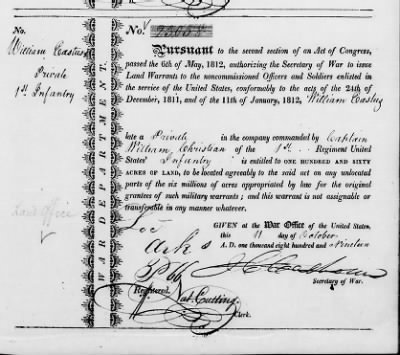 No.
William
Private
1st Infantry
Land Office
WAR DEPARTMENT.
No.
Pursuant to the second section of an Act of Congress,
passed the 6th of May, 1812, authorizing the Secretary of War to issue
Land Warrants to the noncommissioned Officers and Soldiers enlisted in
the service of the United States, conformably to the acts of the 24th of
December, 1811, and of the 11th of January, 1812, William
late a Private in the company commanded by Captain
William Christian of the 1st Regiment United
States' Infantry is entitled to ONE HUNDRED AND SIXTY
ACRES OF LAND, to be located agreeably to the said act on any unlocated
parts of the six millions of acres appropriated by law for the original
grantees of such military warrants; and this warrant is not assignable or
transferable in any manner whatever.
GIVEN at the War Office of the United States,
this 11 day of October
A. D. one thousand eight hundred and Nineteen
J C Calhoun
Secretary of War.
Registered,
Nat. Cutting
Clerk.